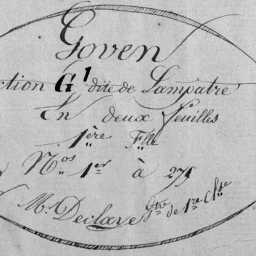 Goven
ction G1 dite de Lampatre
En deux feuilles
1ère Flle
Nos 1er à 271
M. Declave Gtre de 1re Clte